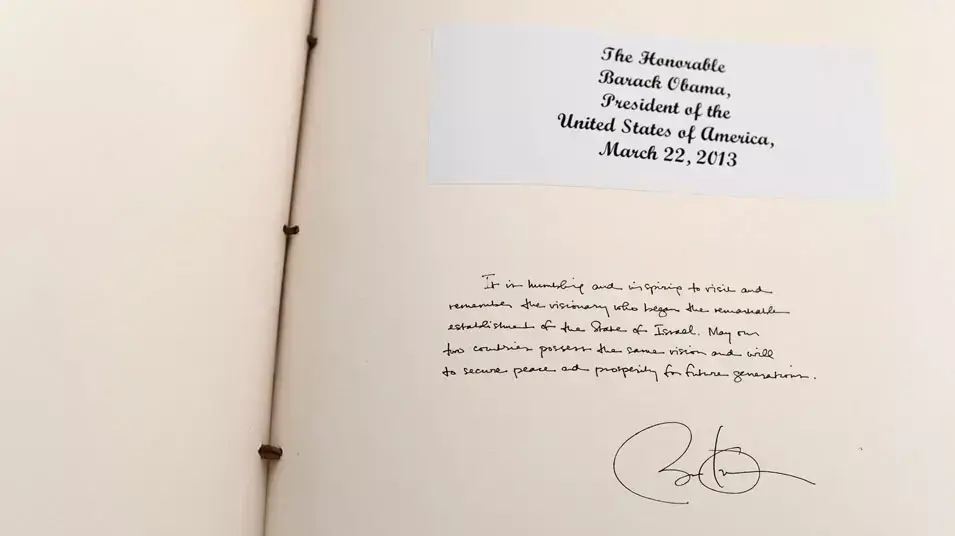 The Honorable
Barack Obama,
President of the
United States of America,
March 22, 2013
It is humbling and inspiring to visit and
remember the visionary who began the remarkable
establishment of the State of Israel. May our
two countries possess the same vision and will
to secure peace and prosperity for future generations.